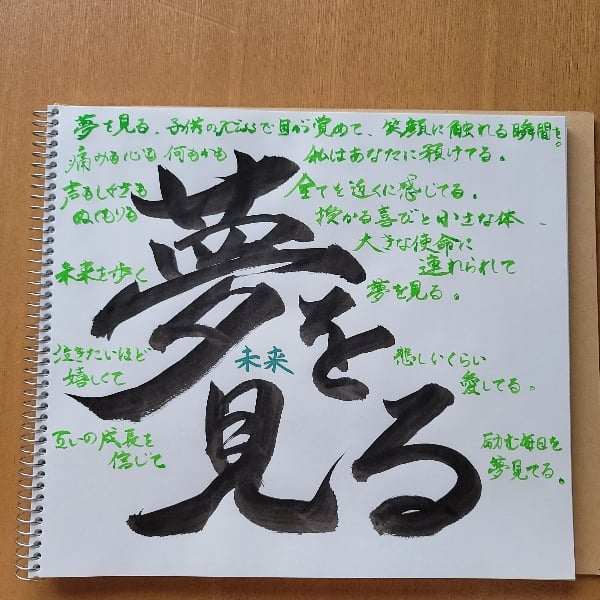 夢を見る。子供のKissで目が覚めて、笑顔に触れる瞬間を。
痛みも心も何もかも
私はあなたに預けてる。
声もしぐさも
ぬくもりも
全てを近くに感じてる。
授かる喜びと小さな体、
大きな使命に
連れられて
夢を見る。
未来を歩く
夢を
見る
未来
泣きたいほど
嬉しくて
悲しいくらい
愛してる。
互いの成長を
信じて
励む毎日を
夢見てる。